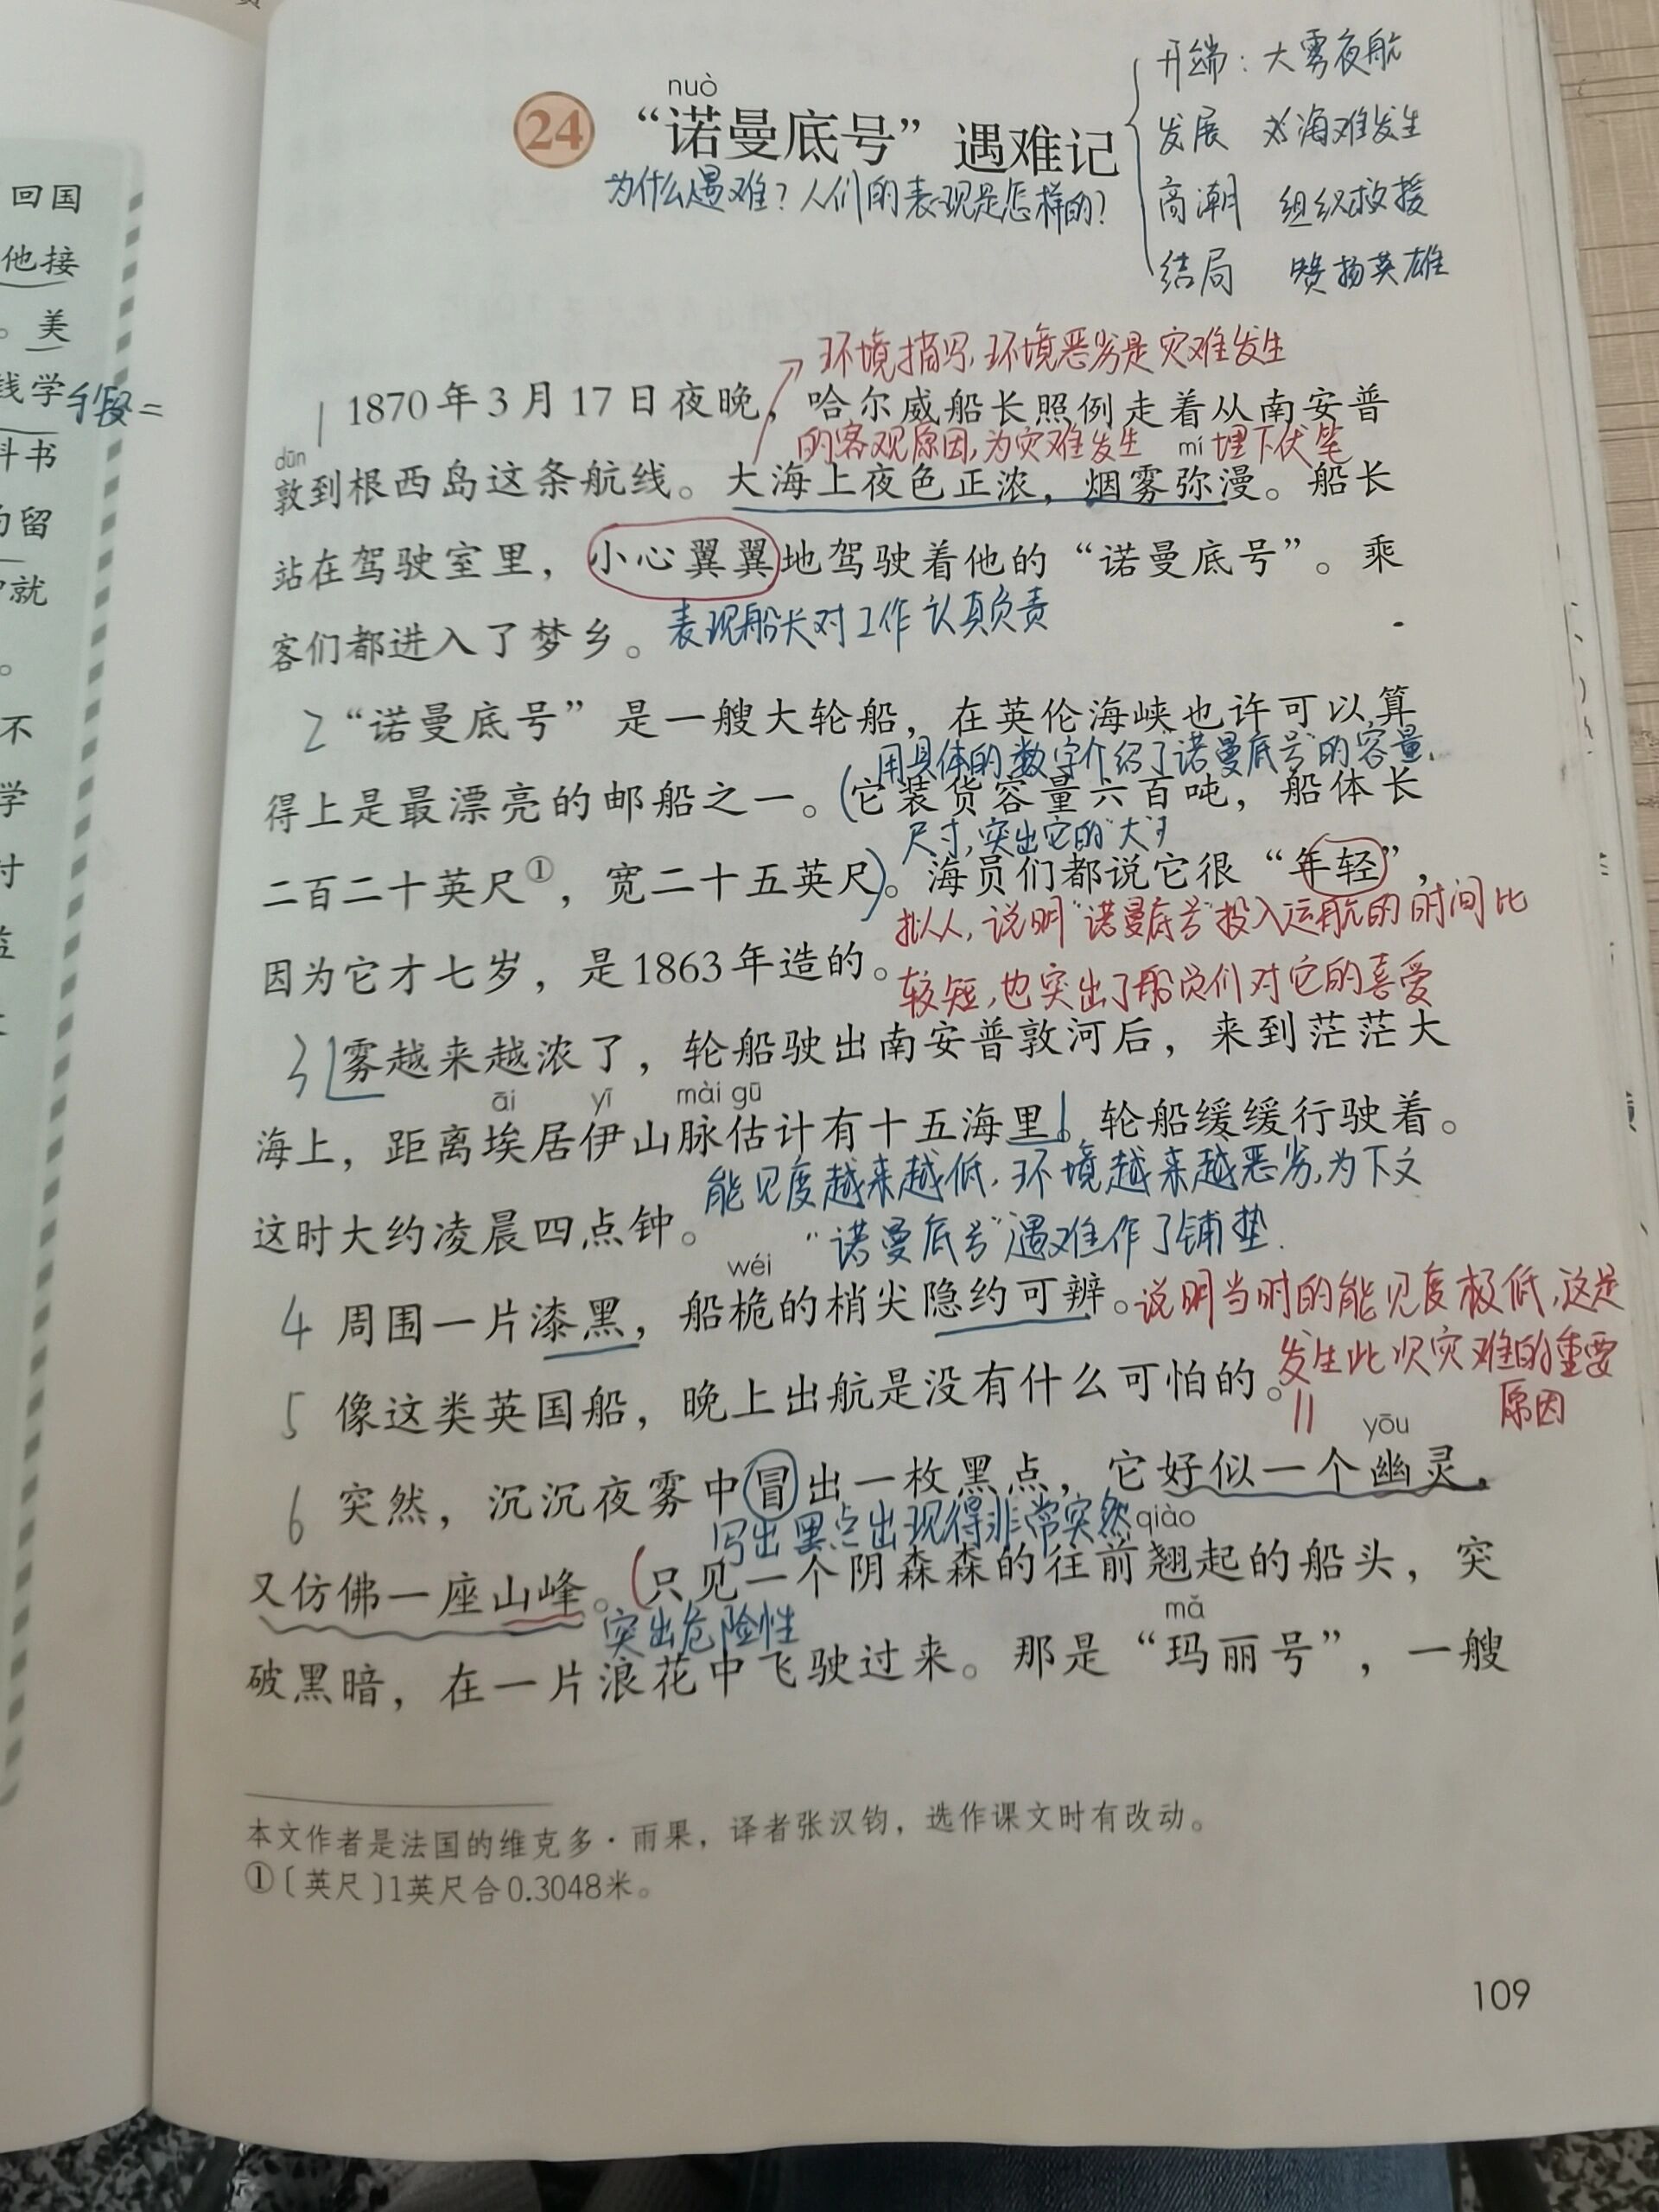 回国
他接
。美
钱学
科书
留
就
。
不
学
nuò
24 “诺曼底号”遇难记
为什么遇难？人们的表现是怎样的？
开端：大雾夜航
发展 海难发生
高潮 组织救援
结局 赞扬英雄
环境描写，环境恶劣是灾难发生
1 1870年3月17日夜晚，哈尔威船长照例走着从南安普
的客观原因，为灾难发生 埋下伏笔
dūn mí
敦到根西岛这条航线。大海上夜色正浓，烟雾弥漫。船长
站在驾驶室里，小心翼翼地驾驶着他的“诺曼底号”。乘
客们都进入了梦乡。表现船长对工作认真负责
2 “诺曼底号”是一艘大轮船，在英伦海峡也许可以算
用具体的数字介绍了“诺曼底号”的容量.
得上是最漂亮的邮船之一。(它装货容量六百吨，船体长
尺寸，突出它的“大”
二百二十英尺①，宽二十五英尺)。海员们都说它很“年轻”，
拟人，说明“诺曼底号”投入运航的时间比
因为它才七岁，是1863年造的。
较短，也突出了船员们对它的喜爱
3 雾越来越浓了，轮船驶出南安普敦河后，来到茫茫大
āi yī mài gū
海上，距离埃居伊山脉估计有十五海里。轮船缓缓行驶着。
能见度越来越低，环境越来越恶劣，为下文
这时大约凌晨四点钟。
“诺曼底号”遇难作了铺垫.
wéi
4 周围一片漆黑，船桅的梢尖隐约可辨。说明当时的能见度极低，这是
发生此次灾难的重要
原因
5 像这类英国船，晚上出航是没有什么可怕的。
yōu
6 突然，沉沉夜雾中冒出一枚黑点，它好似一个幽灵，
写出黑点出现得非常突然
qiào
又仿佛一座山峰。(只见一个阴森森的往前翘起的船头，突
突出危险性
mǎ
破黑暗，在一片浪花中飞驶过来。那是“玛丽号”，一艘
本文作者是法国的维克多·雨果，译者张汉钧，选作课文时有改动。
①〔英尺〕1英尺合0.3048米。
109